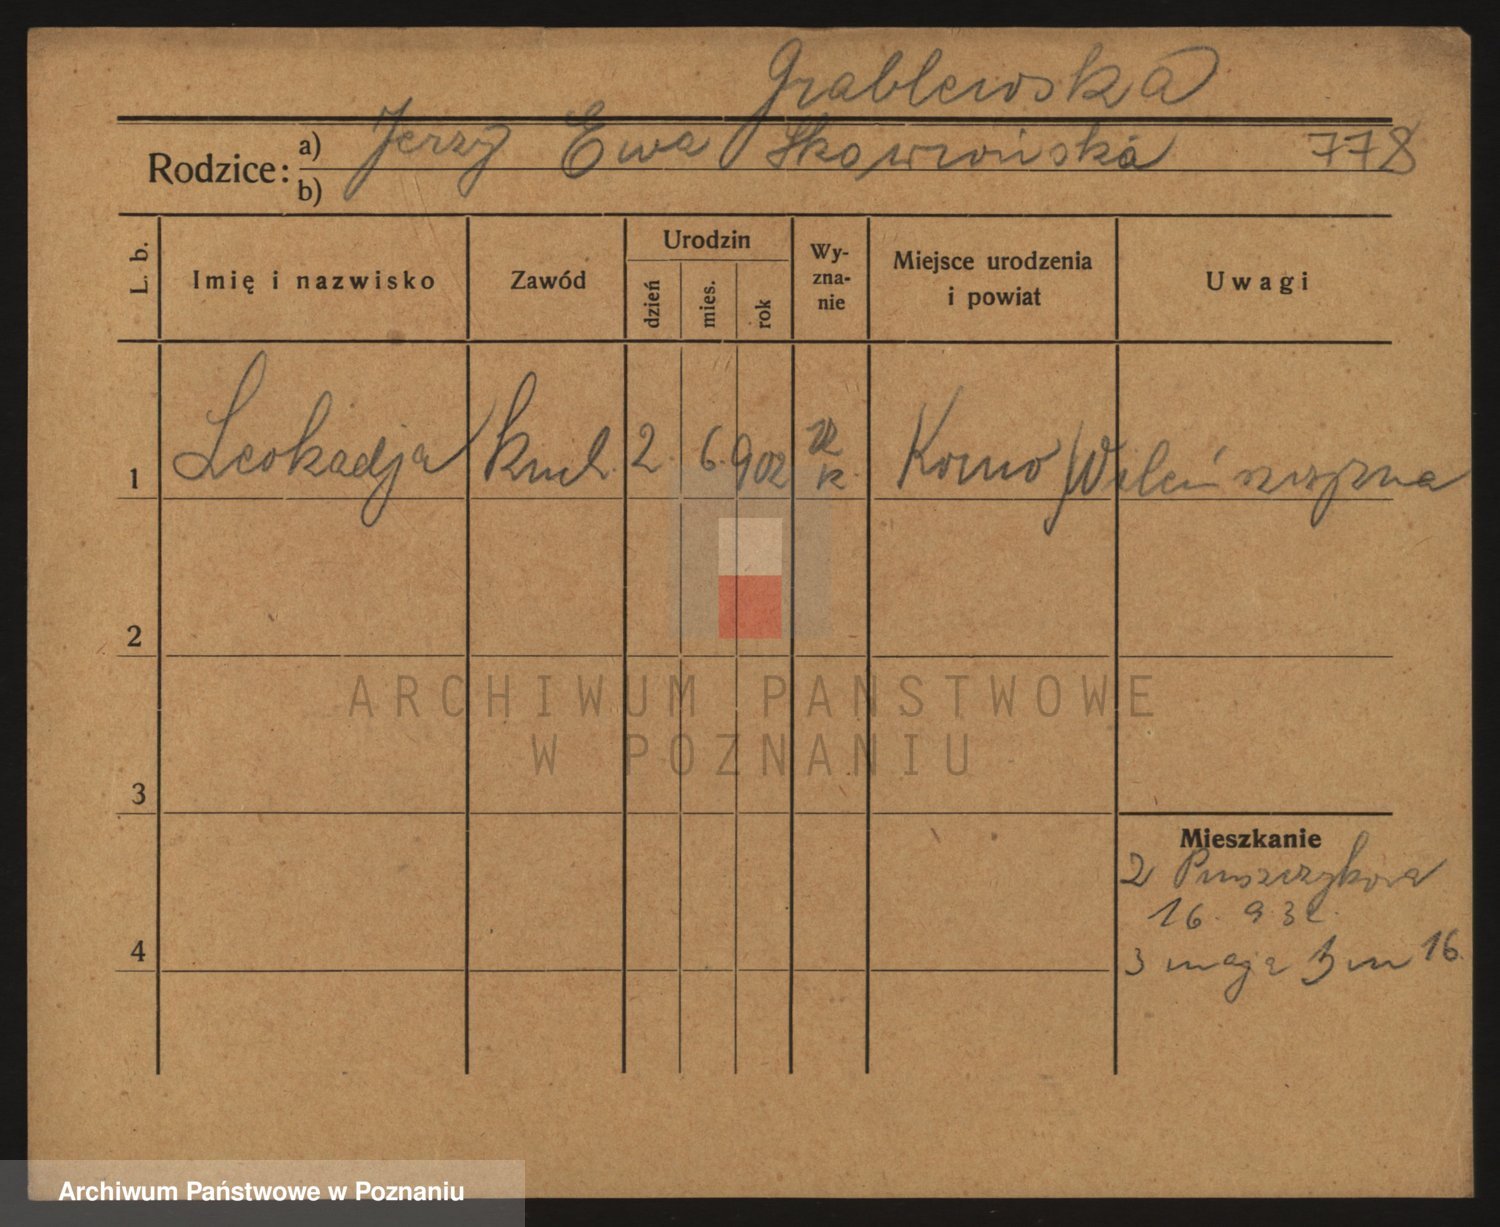 Grablewska
Rodzice: a) Jerzy Ewa Skowrońska 778
b)
L. b. Imię i nazwisko Zawód Urodzin dzień mies. rok Wy-zna-nie Miejsce urodzenia i powiat Uwagi
1 Leokadja 2. 6. 902 R k. Komo / Wileńszczyzna
2
3
Mieszkanie
2 Puszczykowa
16. 9 32.
4
3 maja 3 m 16.
ARCHIWUM PAŃSTWOWE
W POZNANIU
Archiwum Państwowe w Poznaniu